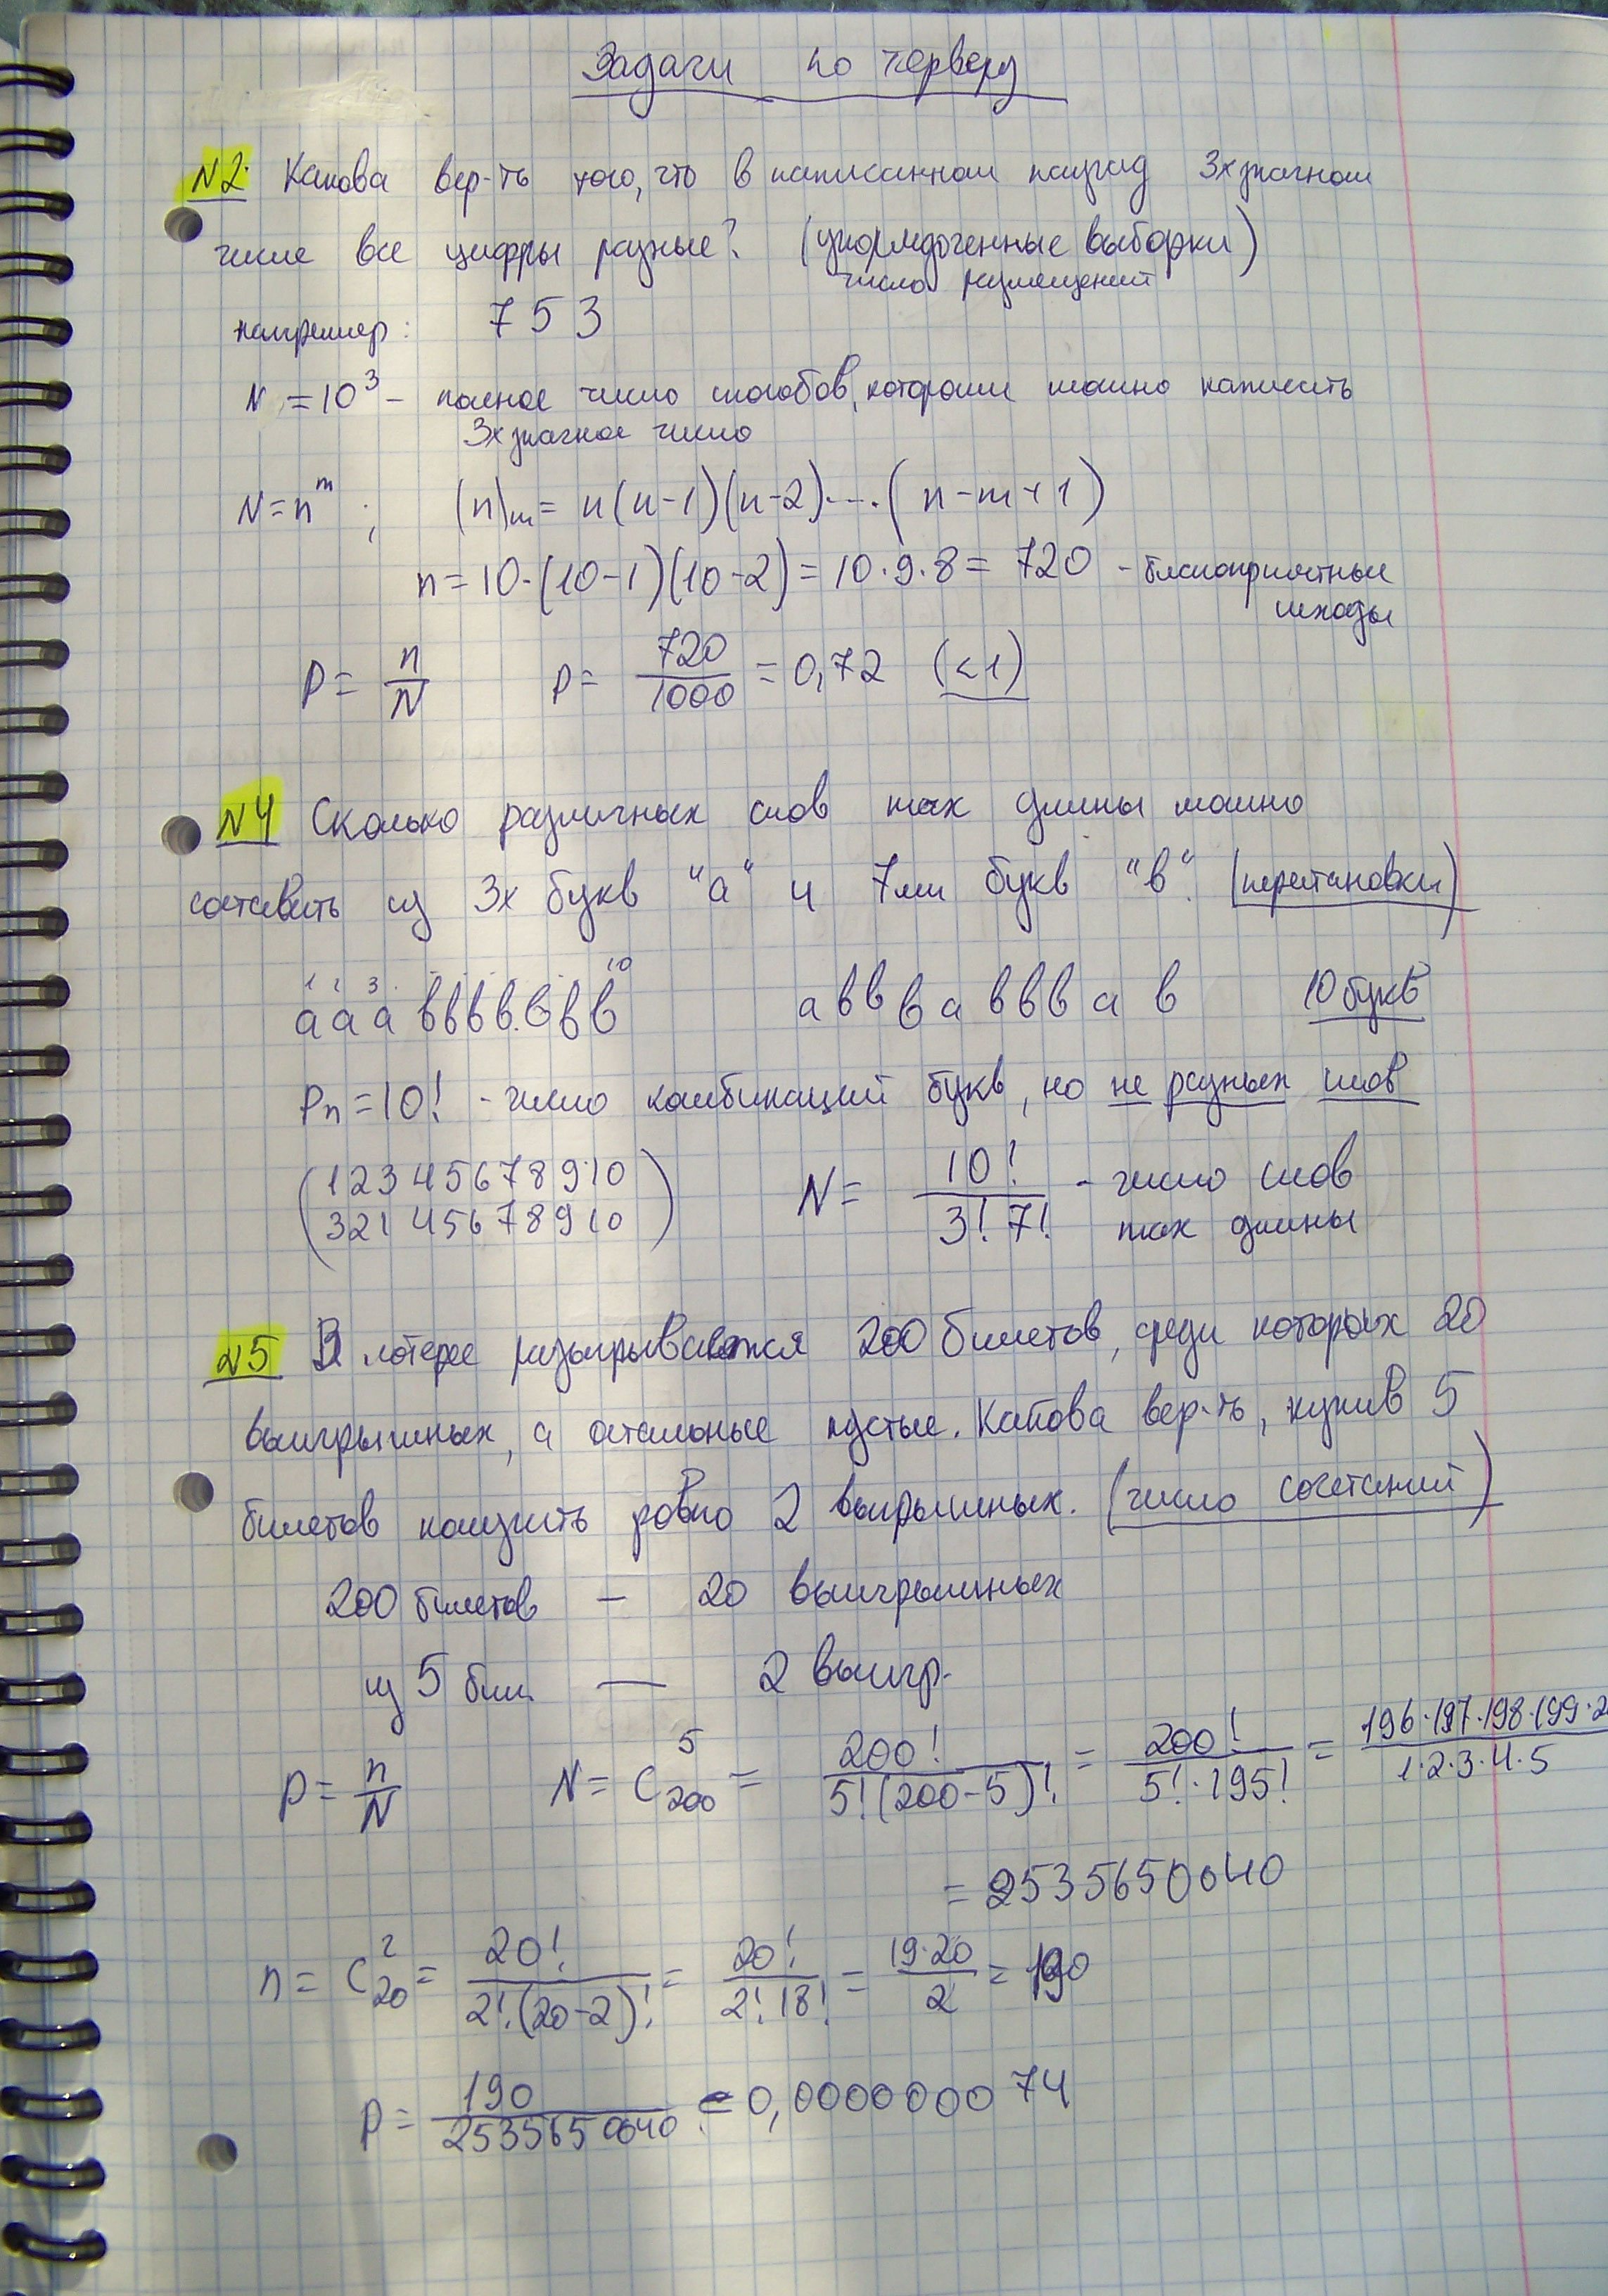 Задачи по терверу
N2. Какова вер-ть того, что в написанном наугад 3хзначном
числе все цифры разные? (упорядоченные выборки)
число размещений
например: 7 5 3
N = 10³ – полное число способов, которыми можно написать
3хзначное число
N = nᵐ ; (n)ₘ = n(n-1)(n-2)·...·(n-m+1)
n = 10·(10-1)(10-2) = 10·9·8 = 720 – благоприятные
исходы
P = n/N p = 720/1000 = 0,72 (<1)
N4 Сколько различных слов max длины можно
составить из 3х букв "а" и 7ми букв "в". (перестановки)
1 2 3 10
а а а в в в в в в в а в в в а в в в а в 10 букв
Pₙ = 10! - число комбинаций букв, но не разных слов
(1 2 3 4 5 6 7 8 9 10) N = 10!/(3! 7!) - число слов
(3 2 1 4 5 6 7 8 9 10) max длины
N5 В лотерее разыгрывается 200 билетов, среди которых 20
выигрышных, а остальные пустые. Какова вер-ть, купив 5
билетов получить ровно 2 выигрышных. (число сочетаний)
200 билетов — 20 выигрышных
из 5 бил. — 2 выигр.
p = n/N N = C₂₀₀⁵ = 200!/(5!(200-5)!) = 200!/(5!·195!) = 196·197·198·199·2/(1·2·3·4·5)
= 2535650040
n = C₂₀² = 20!/(2!(20-2)!) = 20!/(2! 18!) = 19·20/2 = 190
p = 190/2535650040 = 0,000000074